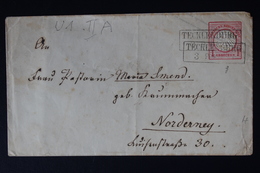 U1 II A
TECKLENBURG
TECKLENBURG
An
Frau Pastorin Marie Smend
geb Krummacher
Norderney
Luisenstraße 30.